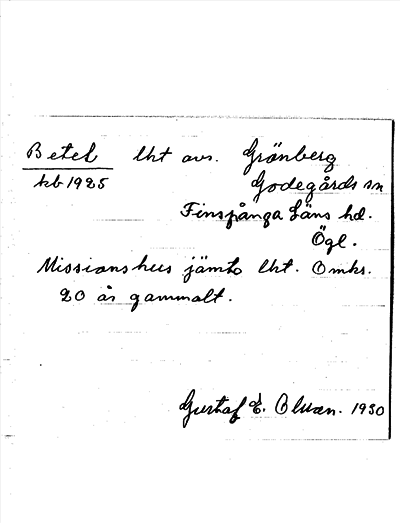 Betel lht avs. Grönberg
hb 1925 Godegårds sn
Finspånga Läns hd.
Ögl.
Missionshus jämte lht. Omkr.
20 år gammalt.
Gustaf E. Olsson. 1930